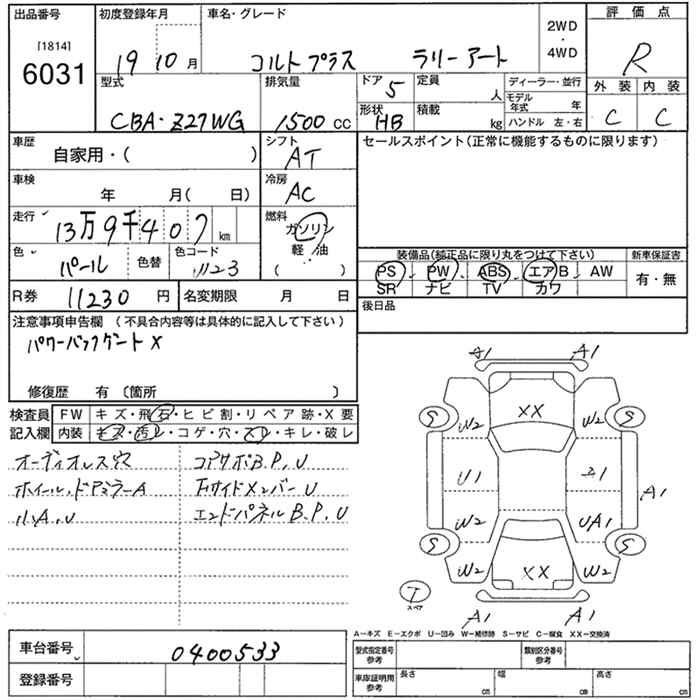 出品番号 初度登録年月 車名・グレード 2WD・4WD 評価点
[1814]
6031 19 10月 コルトプラス ラリーアート R
型式 排気量 ドア 5 定員 人 ディーラー・並行 外装 内装
モデル年式 年
CBA・Z27WG 1500 CC 形状 HB 積載 kg ハンドル 左・右 C C
車歴 自家用・( ) シフト AT セールスポイント(正常に機能するものに限ります)
車検 年 月( 日) 冷房 AC
走行 13万9千407 km 燃料 ガソリン
軽・油
( )
色 パール 色替 色コード 1123
装備品(純正品に限り丸をつけて下さい) 新車保証書
PS PW ABS エアB AW 有・無
SR ナビ TV カワ
R券 11230 円 名変期限 月 日 後日品
注意事項申告欄 (不具合内容等は具体的に記入して下さい)
パワーバックゲート X
修復歴 有 〔箇所 〕
検査員 FW キズ・飛石・ヒビ割・リペア跡・X要
記入欄 内装 キズ・汚レ・コゲ・穴・スレ・キレ・破レ
オーディオレス穴 コアサポB.P,U
ホイール,ドアミラーA Fサイドメンバー U
小A,U エンドパネルB.P,U
A1 A1
S W2 XX W2 S
U1 エ1 A1
W2 UA1
S W2 XX W2 S
T スペア
A1 A1
A−キズ E−エクボ U−凹み W−補修跡 S−サビ C−腐食 XX−交換済
車台番号 0400533 型式指定番号 参考 類別区分番号 参考
登録番号 車庫証明用 参考 長さ cm 幅 cm 高さ cm